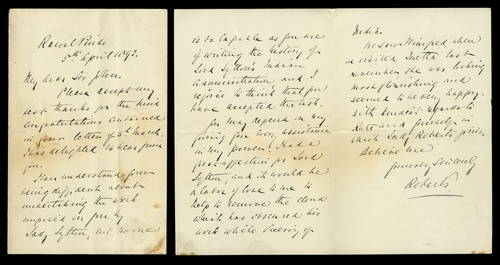 Rawul Pindi
5th April 1892.
My dear Sir John.
Please accept my
best thanks for the kind
congratulations contained
in your letter of 5th March.
I was delighted to hear from
you.
I can understand your
being diffident about
undertaking the work
imposed on you by
Lady Lytton, but no one
is so capable as you are
of writing the history of
Lord Lytton's Indian
administration and I
rejoice to think that you
have accepted the task.
You may depend on my
giving you every assistance
in my power. I had a
great affection for Lord
Lytton and it would be
a labor of love to me to
help to remove the cloud
which has obscured his
work while Viceroy of
India.
We saw Winifred when
we visited Quetta last
November, she was looking
most flourishing and
seemed to be very happy.
With kindest regards to
Kate and yourself in
which Lady Roberts joins.
Believe me
yours very sincerely
Roberts